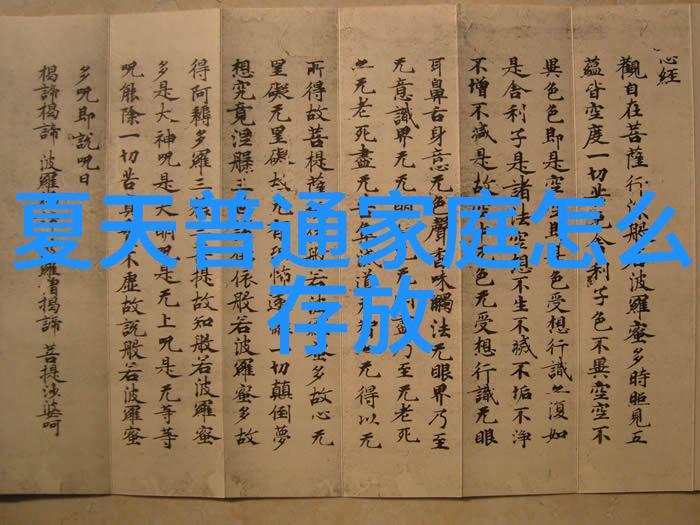 夏天普通家庭怎么
存放
心经
觀自在菩薩行深般波羅蜜多時照見五
蘊皆空度一切苦舍利子色不異空空不
異色色即是空空即是色受想行識亦復如
是舍利子是諸法空想不生不滅不垢不淨
不增不減是故色无受想行識无眼
耳鼻舌身意无色聲香味觸法无眼界乃至
无意識界无无明盡乃至无老死
亦无老死盡无道无得以无
所得故菩提薩般若波羅蜜多故心无
罣礙无罣礙故无有恐怖遠一切顛倒夢
想究竟涅槃三依般若波羅蜜多故
得阿耨多羅三菩提故知般若波羅蜜
多是大神呪是大明呪是无上呪是无等等
呪能除一切苦真不虛故說般若波羅蜜
多呪即說呪曰
揭諦揭諦 波羅羅僧揭諦 菩提薩婆呵